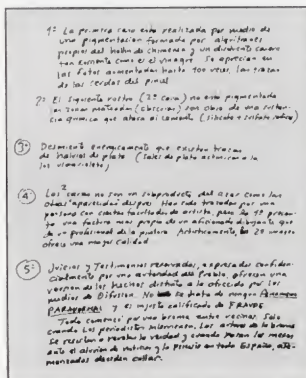 1ª La primera cara esta realizada por medio de
una pigmentacion formada por alquitranes
propios del hollin de chimenea y un disolvente casero
tan corriente como es el vinagre. Se aprecian en
las fotos aumentadas hasta 100 veces, las trazas
de las cerdas del pincel
2ª El siguiente rostro (2ª cara) no esta pigmentada
en zonas profundas (obscuras) son obra de una sustan-
cia quimica que ataca el cemento
3ª Desmiento energicamente que existan trazas
de haluros de plata (Sales de plata actinicas a la
luz ultravioleta)
4ª Las caras no son un subproducto del azar como las
otras aparecidas despues Han sido trazadas por una
persona con ciertas facultades de artista, pero la 1ª presen-
ta una factura mas propia de un aficionado dibujante que
de un profesional de la pintura. Artisticamente, la 2ª imagen
ofrece una mayor calidad
5ª Juicios y Testimonios reservados, expresados confiden-
cialmente por una autoridad del Pueblo, ofrecen una
version de los hechos distinta a la ofrecida por los
medios de Difusion. No se trata de ningun Fenomeno
PARANORMAL y es injusto calificarlo de FRAUDE
Todo comenzo por una broma entre vecinas. Solo
cuando los periodistas intervienen. Los autores de la broma
se resisten a revelar la verdad y cuando pasan los meses
ante el aluvion de noticias y la presencia en toda España, ate-
morizados deciden callar.